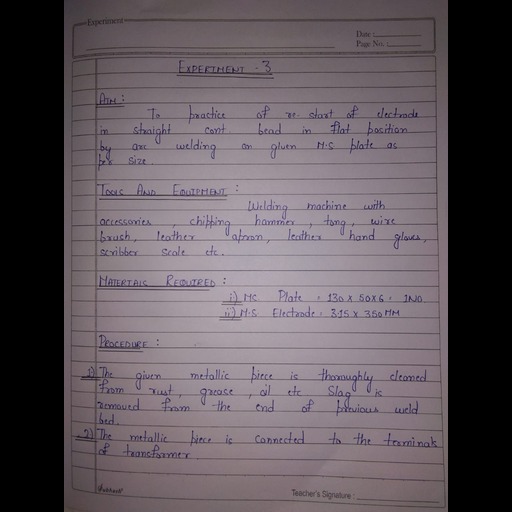 Experiment
Date :
Page No:
EXPERTMENT - 3
AIM :
To practice of re-start of electrode
in straight cont bead in flat position
by arc welding on given M.S plate as
per size.
TOOLS AND EQUIPMENT :
Welding machine with
accessories , chipping hammer , tong, wire
brush, leather apron, leather hand gloves,
scribber scale etc.
MATERIALS REQUIRED :
i) MC Plate = 130 x 50x6 = 1NO.
ii) M.S Electrode = 3.15 x 350 MM
PROCEDURE :
1) The given metallic piece is thoroughly cleaned
from rust, grease, oil etc Slag is
removed from the end of previous weld
bed.
2) The metallic piece is connected to the terminals
of transformer.
Teacher's Signature :